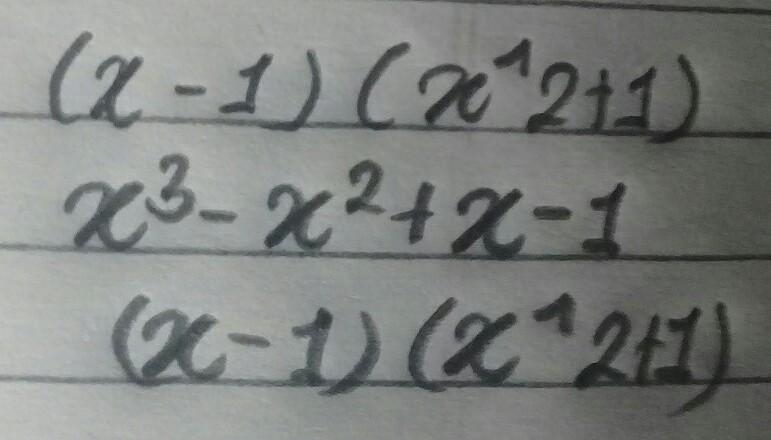 (x-1)(x^2+1)
x³-x²+x-1
(x-1)(x^2+1)